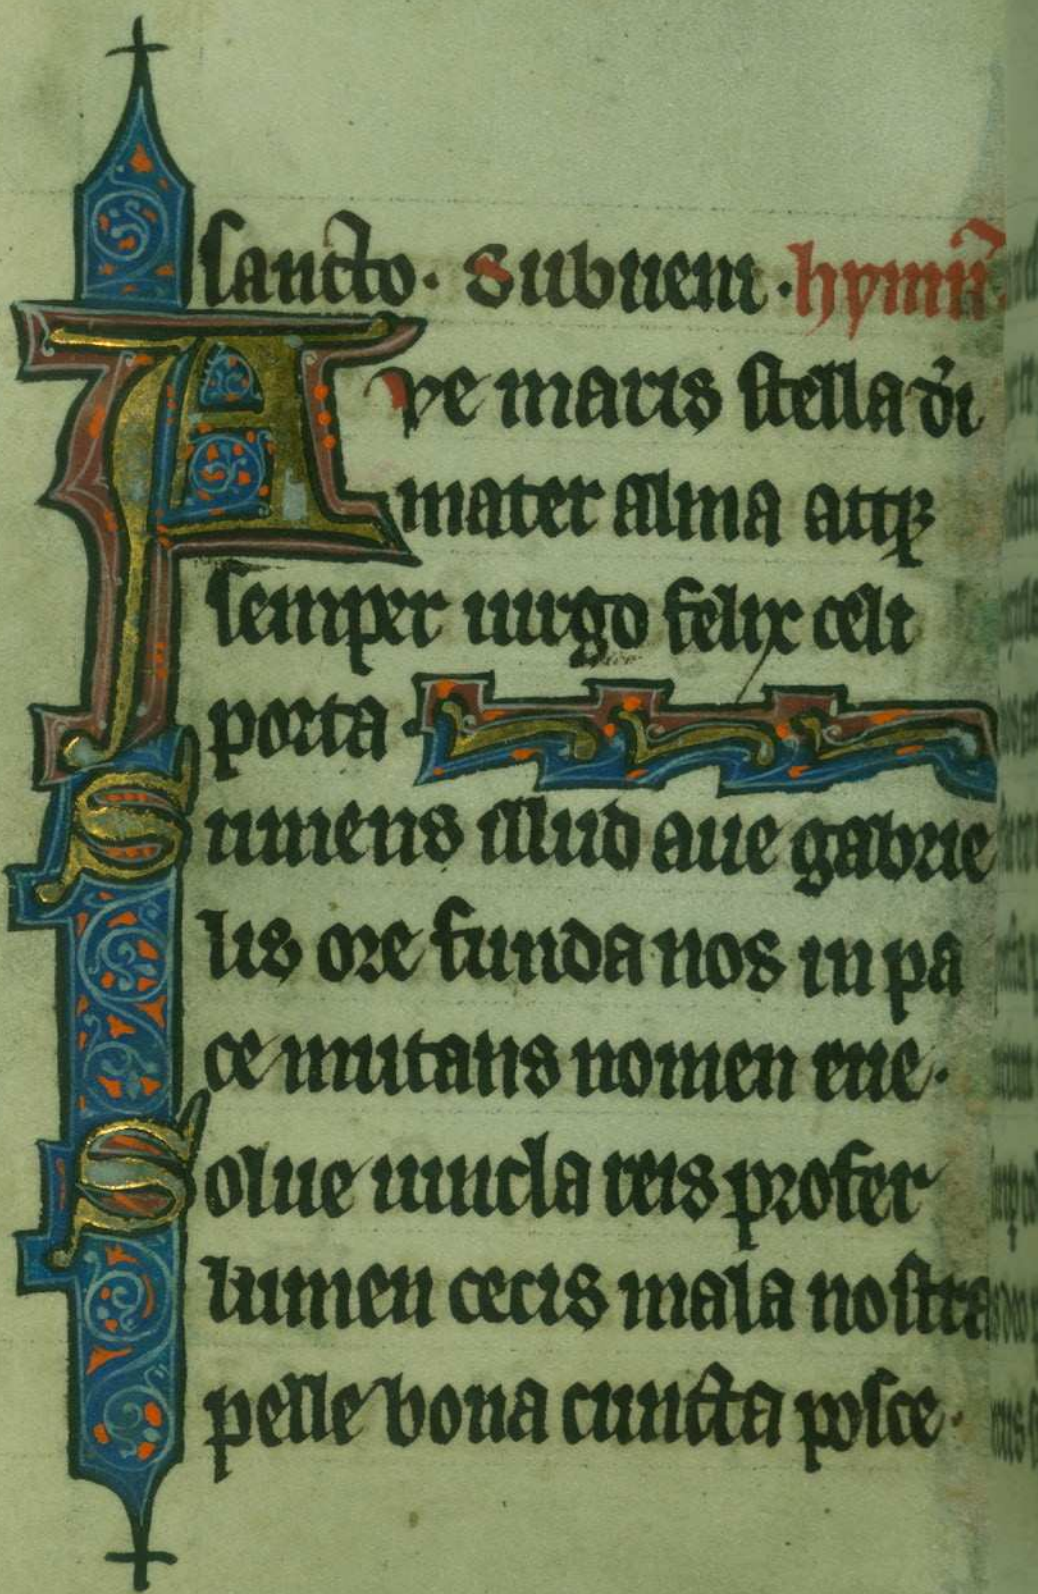 sancto. Subueni. hymñ.
Aue maris stella dei
mater alma atqꝫ
semper uirgo felix celi
porta
Sumens illud aue gabrie
lis ore funda nos in pa
ce mutans nomen eue.
Solue uincla reis profer
lumen cecis mala nostra
pelle bona cuncta posce.